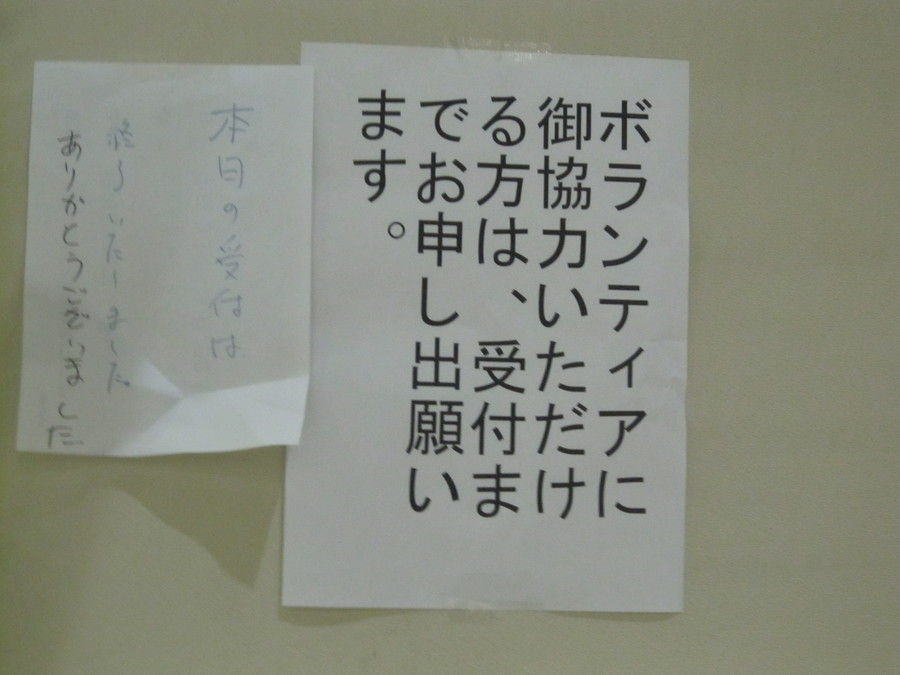 ボランティアに
御協力いただけ
る方は、受付ま
でお申し出願い
ます。
本日の受付は
終了いたしました
ありがとうございました